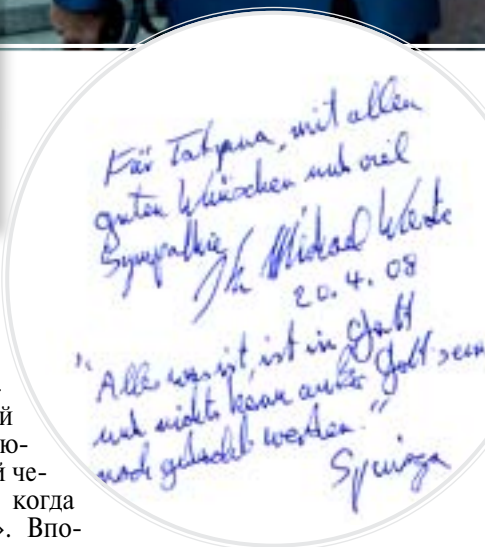 Für Tatyana, mit allen
guten Wünschen und viel
Sympathie
Ihr Michael
20.4.08
"Alles was ist, ist in Gott
und nichts kann außer Gott sein
noch gedacht werden."
Spinoza
й
ю-
й че-
когда
». Впо-